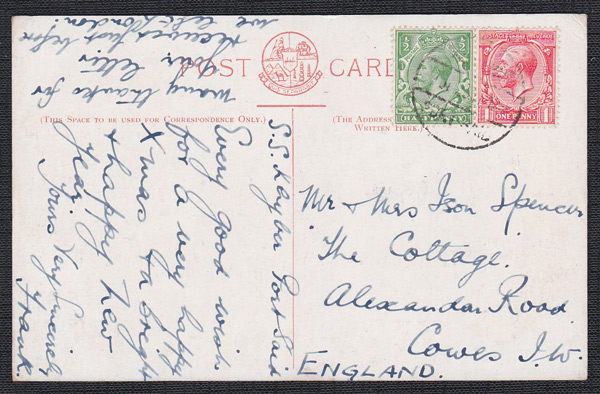 POST CARD
(THIS SPACE TO BE USED FOR CORRESPONDENCE ONLY.)
(THE ADDRESS
WRITTEN HERE.)
HALFPENNY
ONE PENNY
S.S. Kayber Port Said
Every good wish
for a very happy
Xmas & a bright
& happy New
Year.
Yours Very Sincerely
Frank.
many thanks for
letter
received just before
we left London!
Mr & Mrs Ison Spencer
The Cottage.
Alexandar Road
Cowes I.W.
ENGLAND.